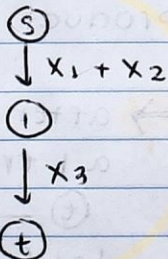 S
X₁ + X₂
1
X₃
t